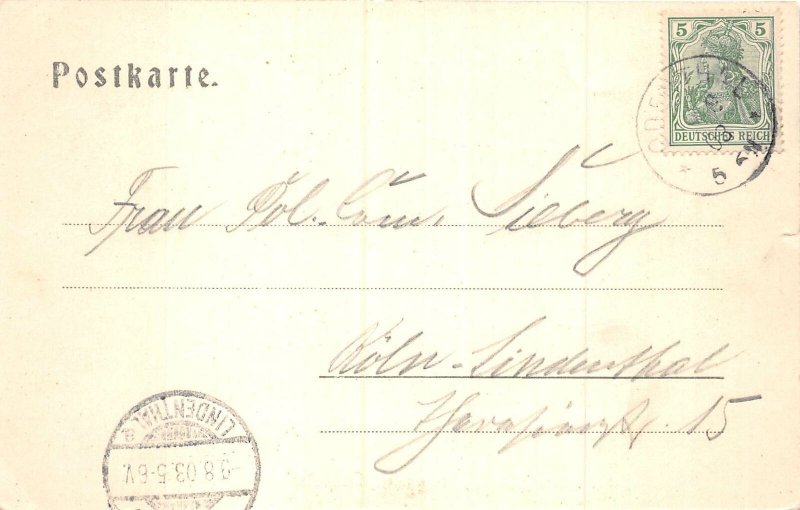 Postkarte.
5 5
DEUTSCHES REICH
5 N
Frau Pol. Com. Sieberg
Köln-Lindenthal
15
LINDENTHAL
9.8.03.5-6V.